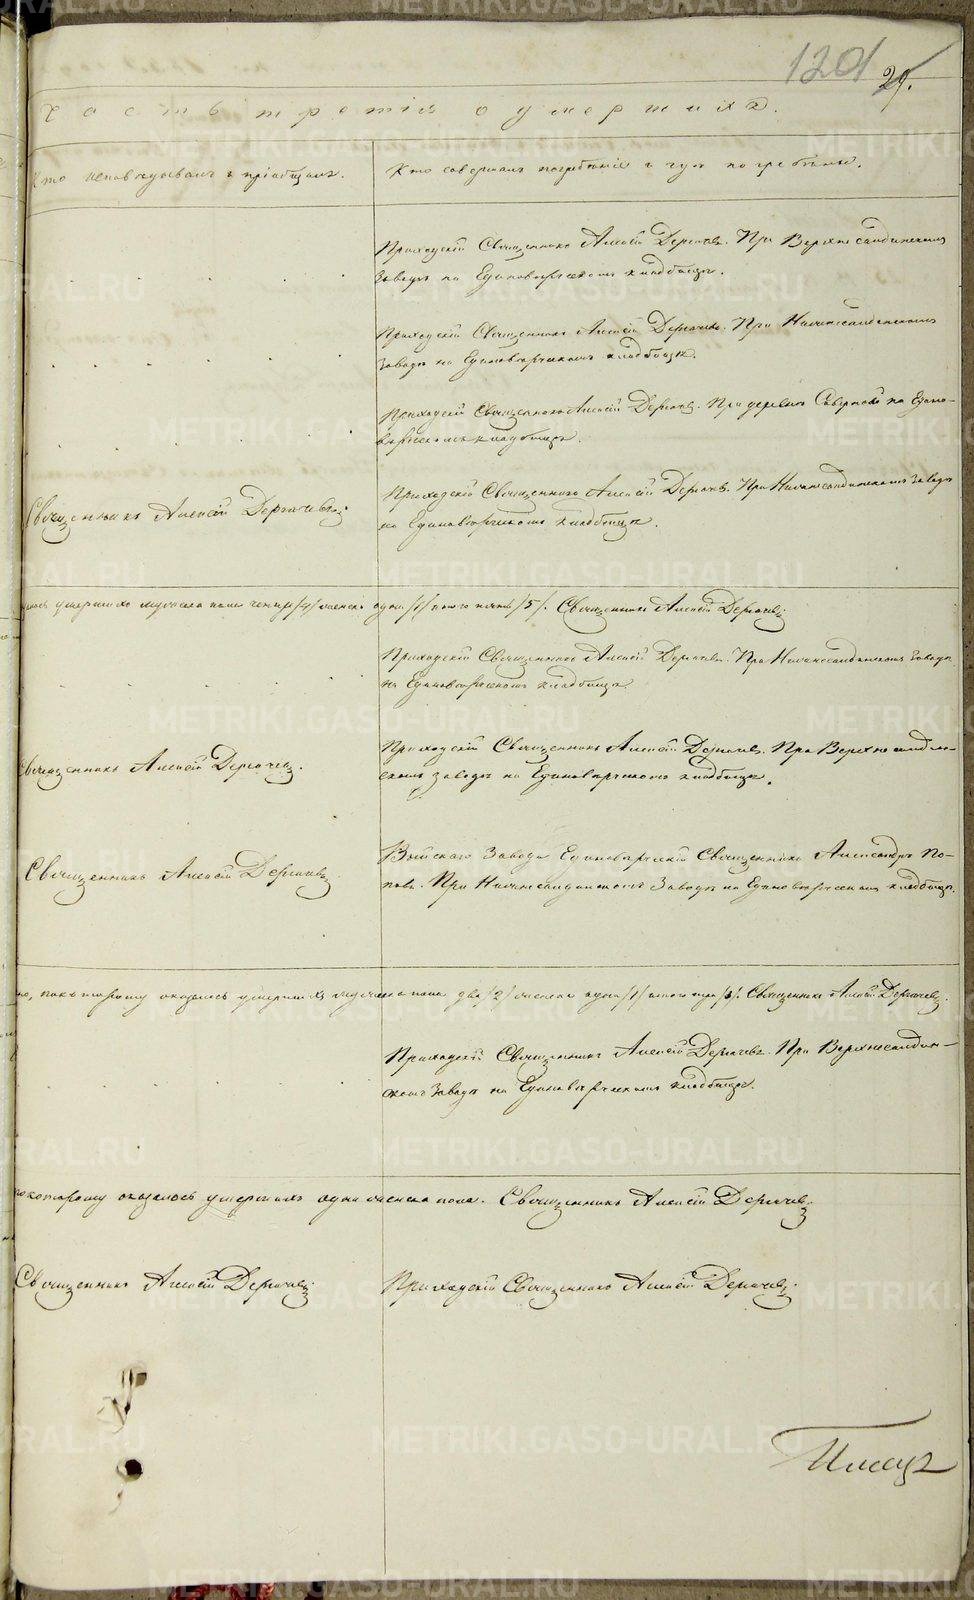 1201 29.
Часть третія о умершихъ.
Кто исповѣдывалъ и пріобщалъ.
Кто совершалъ погребеніе и гдѣ погребены.
Приходскій Священникъ Алексій Дергачевъ. При Верхнесалдинскомъ
Заводѣ на Единовѣрческомъ кладбищѣ.
Приходскій Священникъ Алексій Дергачевъ. При Нижнесалдинскомъ
Заводѣ на Единовѣрческомъ кладбищѣ.
Приходскій Священникъ Алексій Дергачевъ. При деревнѣ на Едино-
вѣрческомъ кладбищѣ.
Священникъ Алексій Дергачевъ.
Приходскій Священникъ Алексій Дергачевъ. При Нижнесалдинскомъ Заводѣ
на Единовѣрческомъ кладбищѣ.
умершихъ мужеска пола четыре /4/ женска одна /1/ итого пять /5/. Священникъ Алексій Дергачевъ.
Приходскій Священникъ Алексій Дергачевъ. При Нижнесалдинскомъ Заводѣ
на Единовѣрческомъ кладбищѣ.
Священникъ Алексій Дергачевъ.
Приходскій Священникъ Алексій Дергачевъ. При Верхнесалдин-
скомъ заводѣ на Единовѣрческомъ кладбищѣ.
Священникъ Алексій Дергачевъ.
Выйскаго Завода Единовѣрческій Священникъ Александръ По-
повъ. При Нижнесалдинскомъ Заводѣ на Единовѣрческомъ кладбищѣ.
по которому оказалось умершихъ мужеска пола два /2/ женска одна /1/ итого три /3/. Священникъ Алексій Дергачевъ.
Приходскій Священникъ Алексій Дергачевъ. При Верхнесалдин-
скомъ Заводѣ на Единовѣрческомъ кладбищѣ.
по которому оказалось умершихъ одна женска пола. Священникъ Алексій Дергачевъ.
Священникъ Алексій Дергачевъ.
Приходскій Священникъ Алексій Дергачевъ.
METRIKI.GASO-URAL.RU